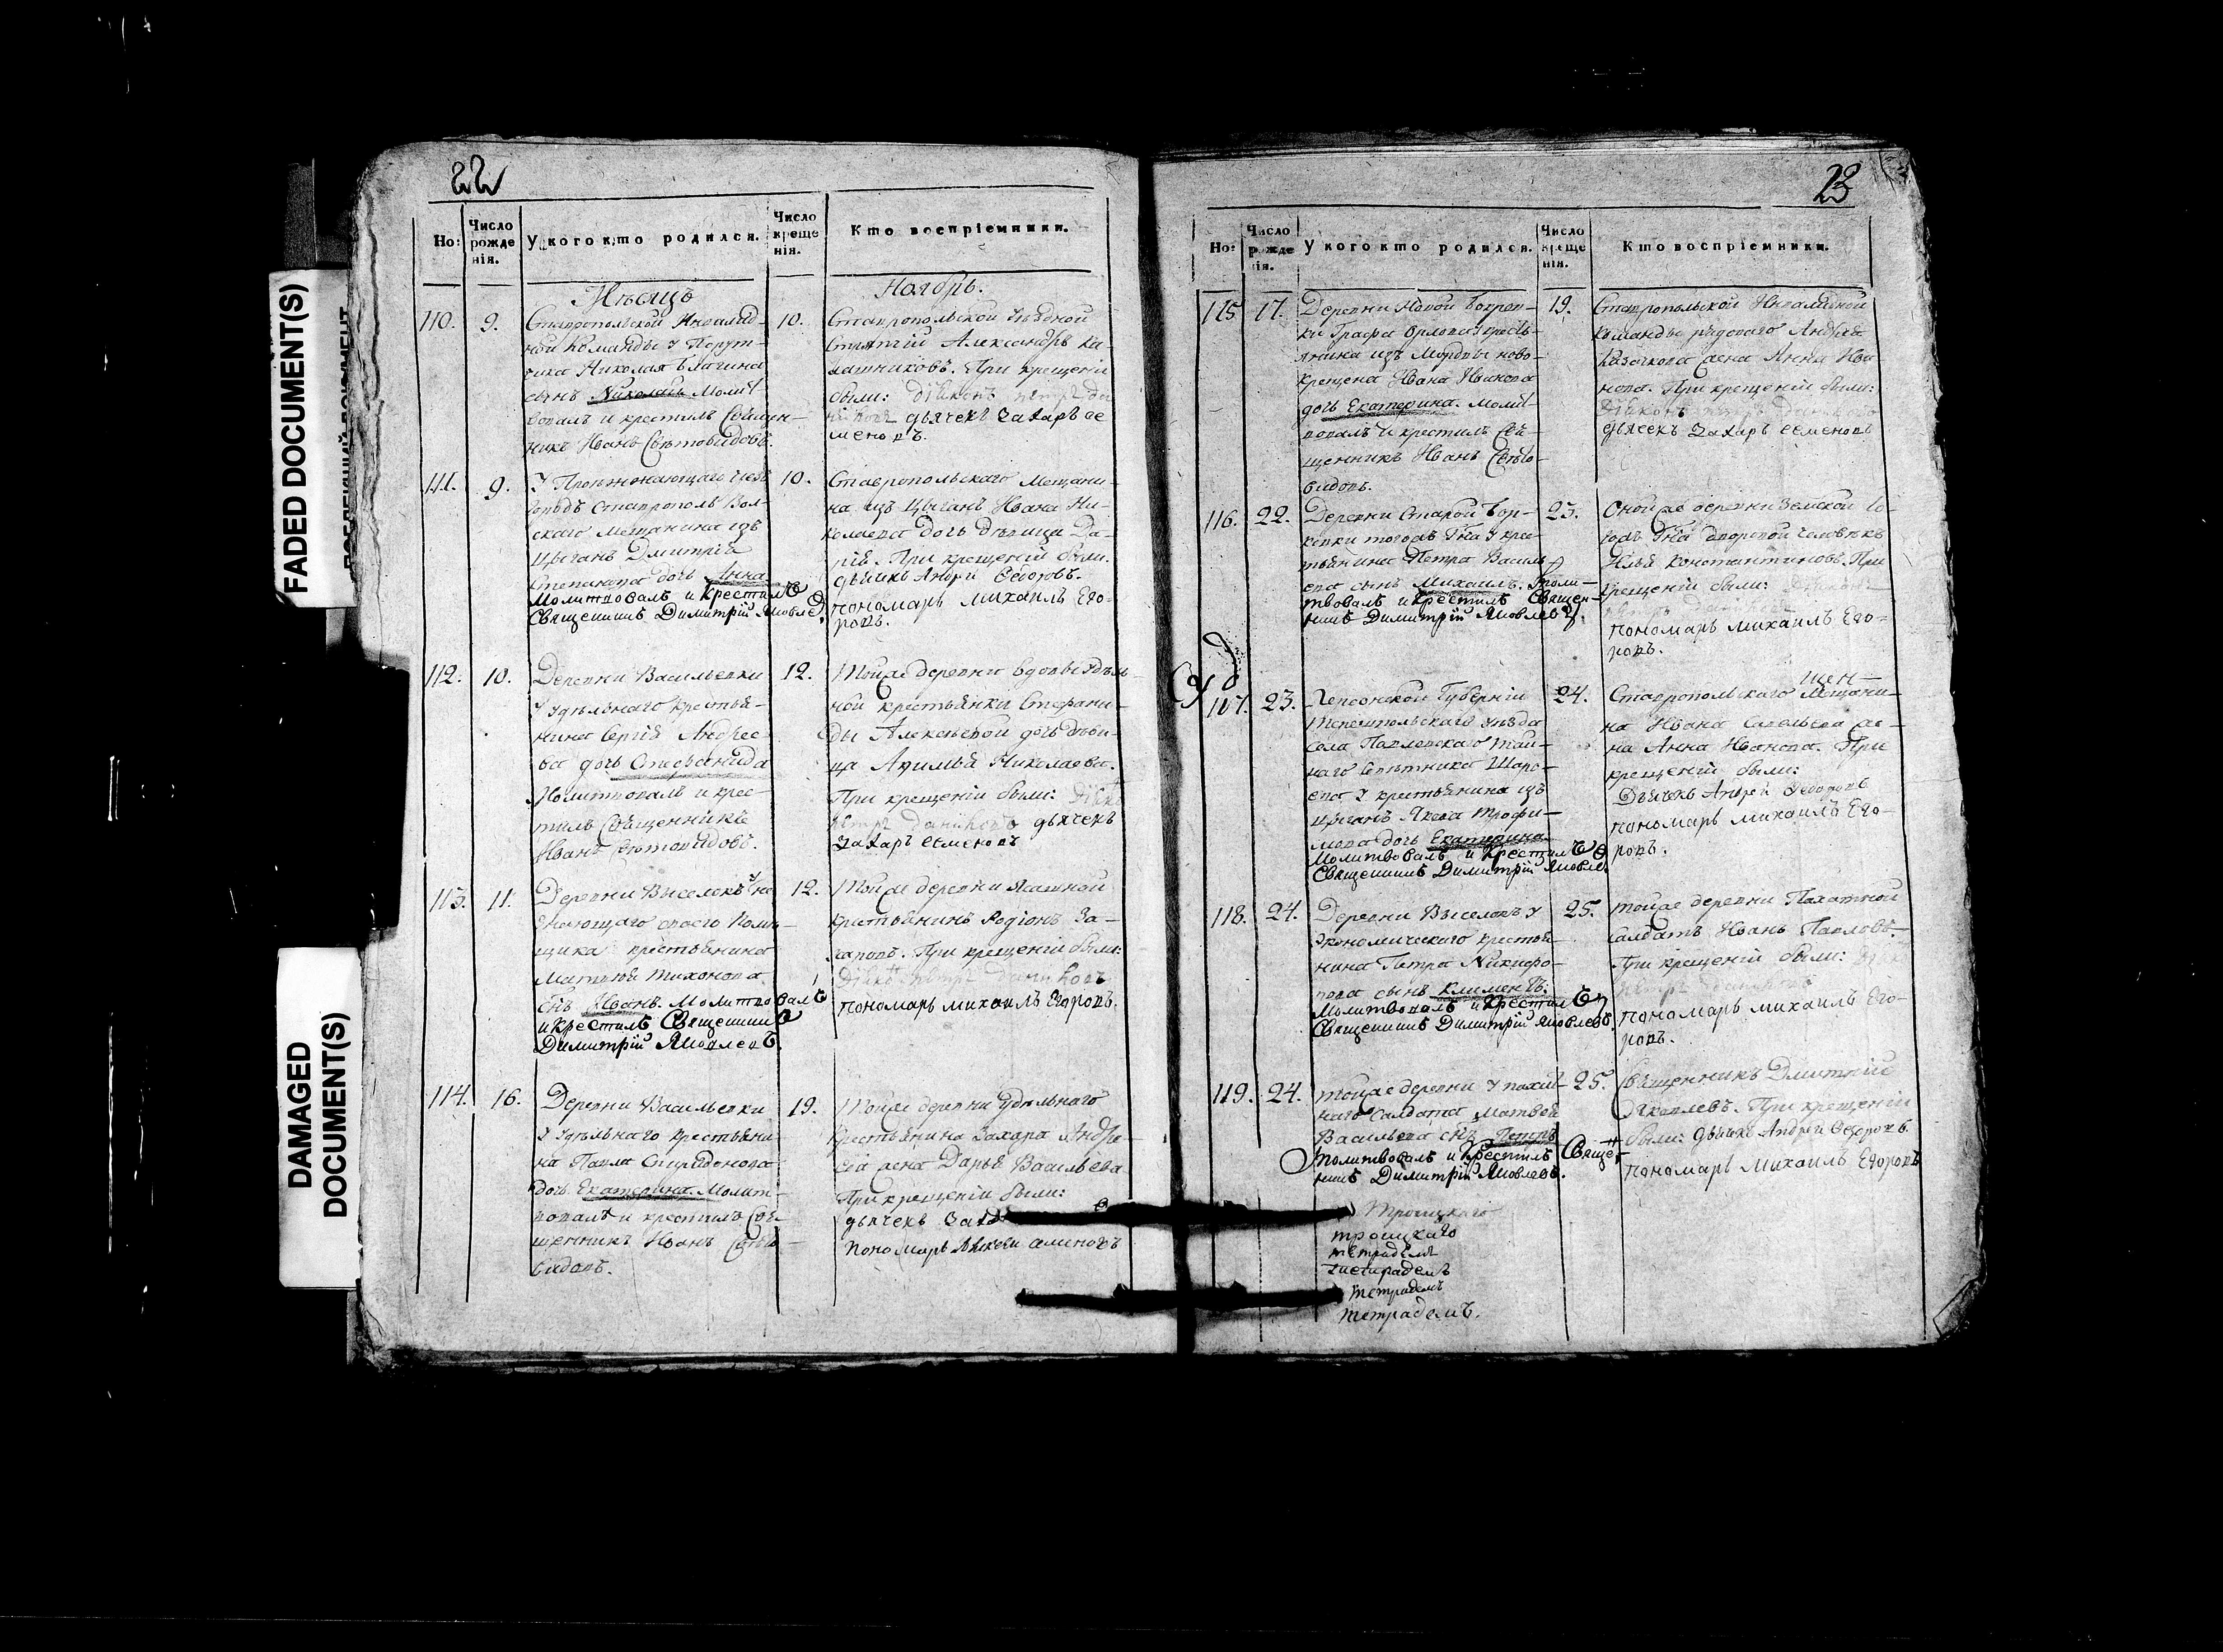 22
Но:
Число рожде нія.
У кого кто родился.
Число креще нія.
Кто воспріемники.
Мѣсяцъ
Ноябрь.
110. 9.
Ставропольской Инвалид-
ной команды у Порут-
чика Николая
сынъ Николай. Молит
вовалъ и крестилъ Священ-
никъ Иванъ Свѣтовидовъ.
10.
Ставропольской Уѣздной
Стряпчій Александръ Ка-
лашниковъ. При крещеніи
были:
дьячекъ Захаръ Се
меновъ.
111. 9.
У Проѣзжающаго чрез
городъ Ставрополь Вол-
скаго Мещанина изъ
Цыганъ Дмитрія
Степанова дочь Анна.
Молитвовалъ и Крестилъ
Священникъ Димитрій Яковле
10.
Ставропольскаго Мещани-
на изъ Цыганъ Ивана Ни-
колаева дочь дѣвица Да-
рія. При крещеніи были.
дьячекъ Андрей Ѳедоровъ.
пономарь Михаилъ Его-
ровъ.
112. 10.
Деревни Васильевки
У удѣльнаго крестья-
нина Сергія Андрее-
ва дочь Стефанида
Молитвовалъ и крес-
тилъ Священникъ
Иванъ Свѣтовидовъ.
12.
Тойже деревни вдовы удѣль-
ной крестьянки Стефани-
ды Алексѣевой дочь дѣви-
ца Акилина Николаева.
При крещеніи были:
дьячекъ
Захаръ Семеновъ
113. 11.
Деревни Выселокъ у не
знающаго своего Помѣ-
щика крестьянина
Матвѣя Тихонова
снъ Иванъ. Молитвовалъ
и Крестилъ Священникъ
Димитрій Яковлевъ.
12.
Тойже деревни Ясашной
крестьянинъ Родіонъ За-
харовъ. При крещеніи были:
пономарь Михаилъ Егоровъ.
114. 16.
Деревни Васильевки
У удѣльнаго крестьяни-
на Павла Спиридонова
дочь Екатерина. Молит-
вовалъ и крестилъ Свя-
щенникъ Иванъ Свѣто-
видовъ.
19.
Тойже деревни удѣльнаго
крестьянина Захара Андре-
ева жена Дарья Васильева
При крещеніи были:
дьячекъ Заха
пономарь Алексей
23
Но:
Число рожде нія.
У кого кто родился.
Число креще нія.
Кто воспріемники.
115 17.
Деревни Новой Борков-
ки Графа Орлова у кресть-
янина изъ Мордвы ново-
крещена Ивана Иванова
дочь Екатерина. Молит
вовалъ и крестилъ Свя-
щенникъ Иванъ Свѣто-
видовъ.
19.
Ставропольской Инвалидной
команды рядоваго Андрея
Казачкова жена Анна Ива
нова. При крещеніи были:
Діяконъ
дьячекъ Захаръ Семеновъ
116. 22.
Деревни Старой Бор-
ковки тогожъ Гна у крес-
тьянина Петра Василь-
ева сынъ Михаилъ. Моли-
твовалъ и Крестилъ Священ-
никъ Димитрій Яковлевъ.
23.
Оной же деревни Земской
Гна дворовой человѣкъ
Илья Константиновъ. При
крещеніи были:
пономарь Михаилъ Его-
ровъ.
117. 23.
Херсонской Губерніи
Тираспольскаго уѣзда
села Павловскаго Тай-
наго Совѣтника
у крестьянина изъ
Цыганъ Якова Трофи-
мова дочь Екатерина
Молитвовалъ и Крестилъ
Священникъ Димитрій Яковле
24.
щен-
Ставропольскаго Мещани-
на Ивана Савельева же-
на Анна Иванова. При
крещеніи были:
Дьячекъ Андрей Ѳедоровъ
пономарь Михаилъ Его-
ровъ.
118. 24.
Деревни Выселокъ у
Экономическаго крестья-
нина Петра Никифо-
рова сынъ Климентъ.
Молитвовалъ и Крестилъ
Священникъ Димитрій Яковлевъ.
25.
Тойже деревни Пахатной
Салдатъ Иванъ Павловъ.
При крещеніи были:
пономарь Михаилъ Его-
ровъ.
119. 24.
Тойже деревни у пахат-
наго Салдата Матвея
Васильева снъ Петръ
Молитвовалъ и Крестилъ Свящ
никъ Димитрій Яковлевъ.
25.
Священникъ Дмитрій
Яковлевъ. При крещеніи
были: дьячекъ Андрей Ѳедоровъ
пономарь Михаилъ Егоровъ
Троицкаго
троицкаго
тетрадемъ
тетрадемъ
тетрадемъ
тетрадемъ.
FADED DOCUMENT(S)
DAMAGED
DOCUMENT(S)